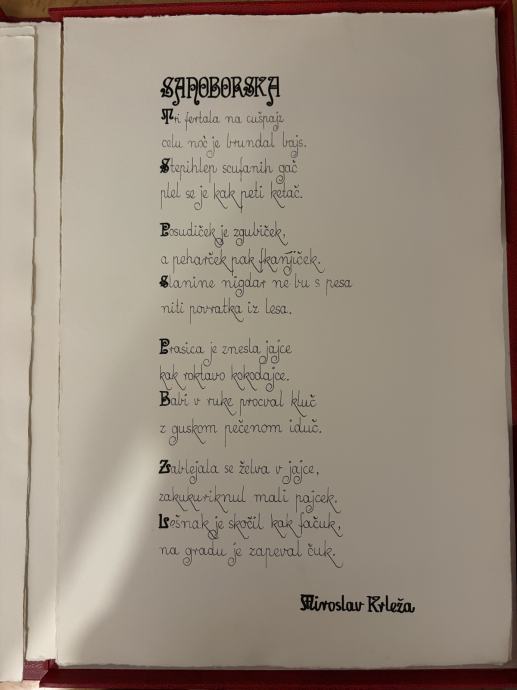 SAMOBORSKA
Tri fertala na cušpajz
celu noč je brundal bajs.
Stepihlep scufanih gač
plel se je kak peti ketač.
Posudiček je zgubiček,
a peharček pak fkanjiček.
Slanine nigdar ne bu s pesa
niti povratka iz lesa.
Prasica je znesla jajce
kak roktavo kokodajce.
Babi v ruke procval kluč
z guskom pečenom iduč.
Zablejala se želva v jajce,
zakukuriknul mali pajcek.
Lešnak je skočil kak fačuk,
na gradu je zapeval čuk.
Miroslav Krleža